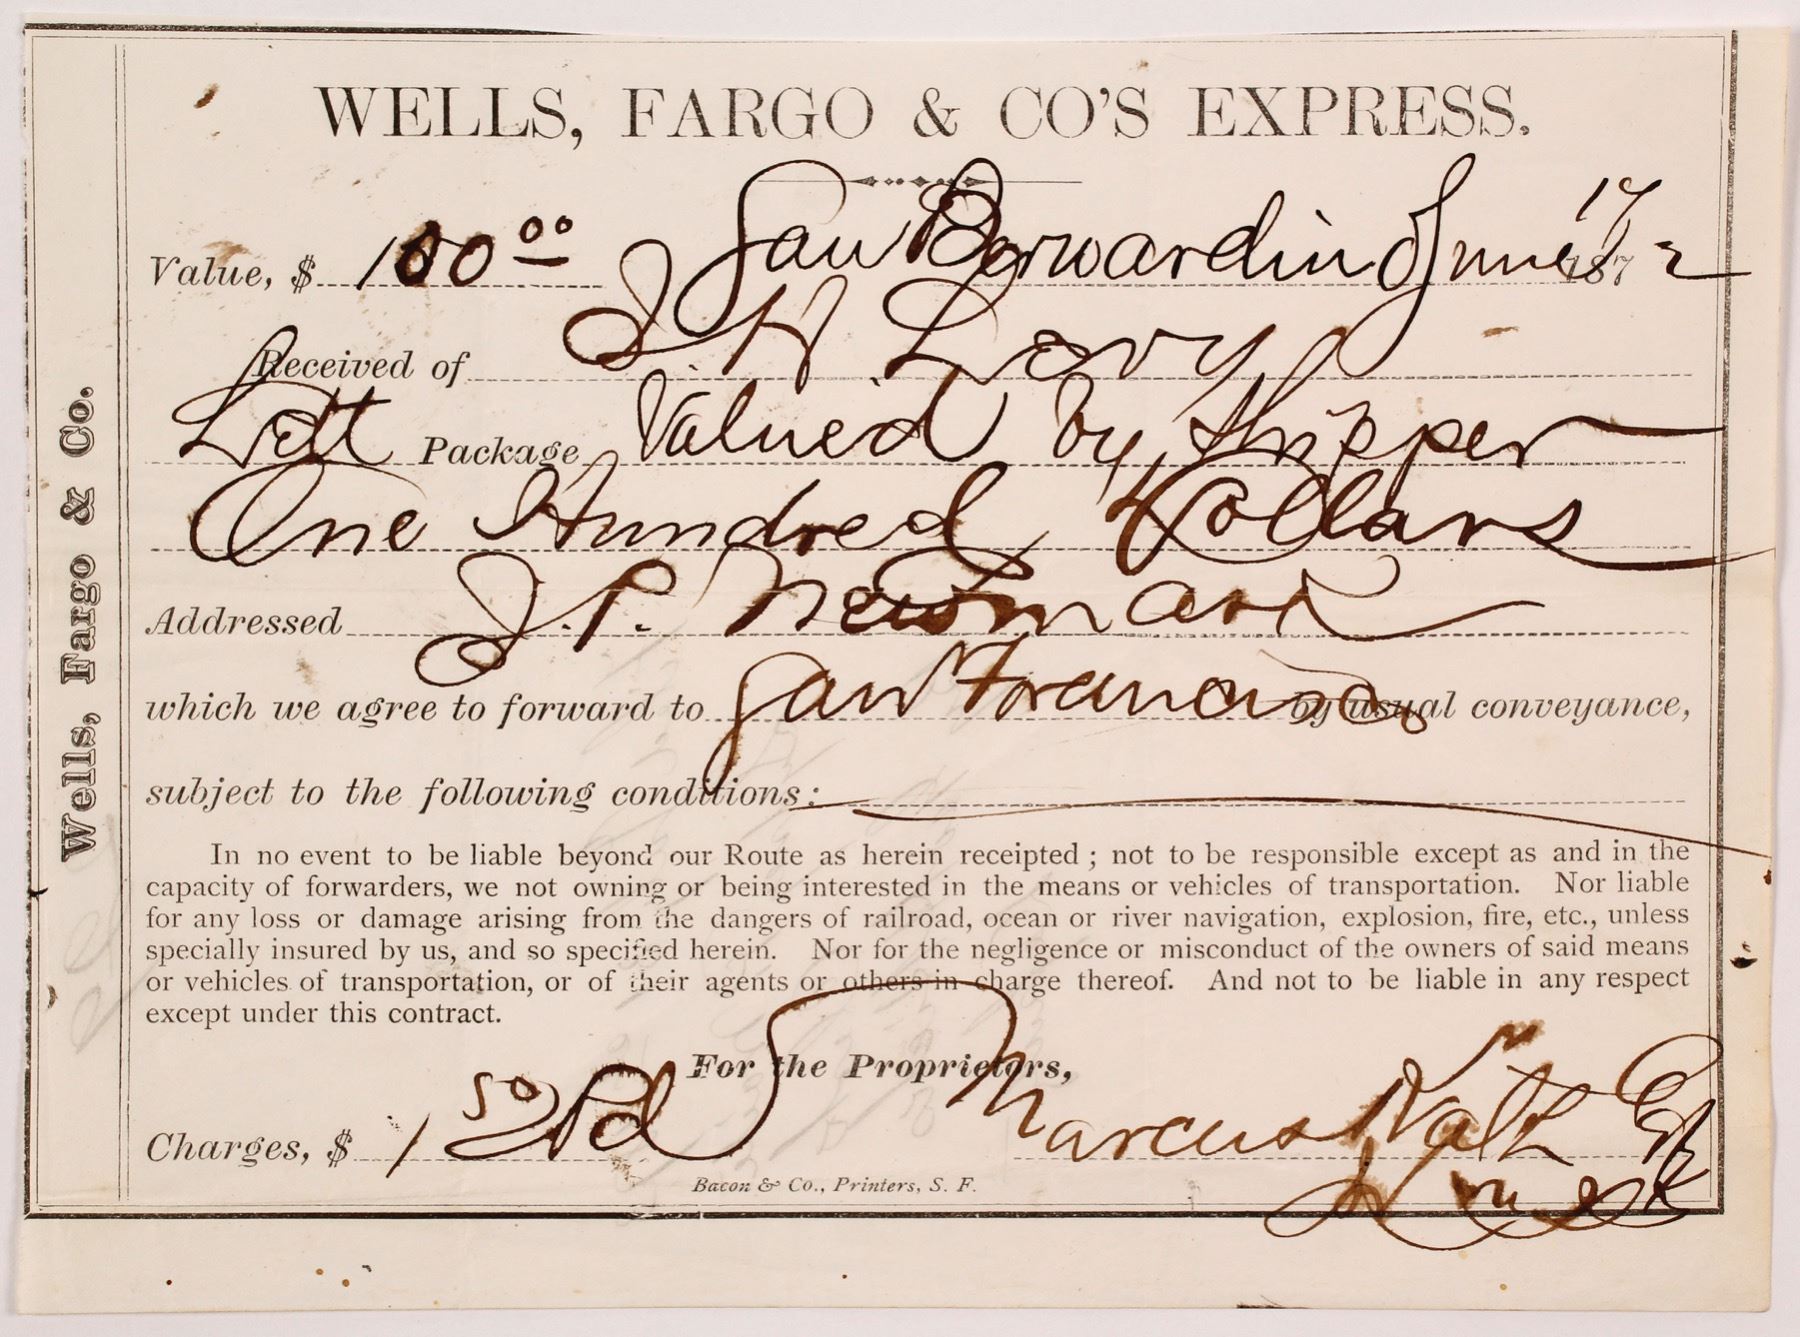 WELLS, FARGO & CO'S EXPRESS.
Value, $ 100 00 San Bernardino June 17 1872
Received of J H Levy
Package Valued by Shipper
One Hundred Dollars
Addressed J. P. Newmark
which we agree to forward to San Francisco by usual conveyance,
subject to the following conditions:
In no event to be liable beyond our Route as herein receipted ; not to be responsible except as and in the
capacity of forwarders, we not owning or being interested in the means or vehicles of transportation. Nor liable
for any loss or damage arising from the dangers of railroad, ocean or river navigation, explosion, fire, etc., unless
specially insured by us, and so specified herein. Nor for the negligence or misconduct of the owners of said means
or vehicles of transportation, or of their agents or others in charge thereof. And not to be liable in any respect
except under this contract.
For the Proprietors,
Charges, $ 1 50 Pd Marcus Katz
Bacon & Co., Printers, S. F.
Wells, Fargo & Co.